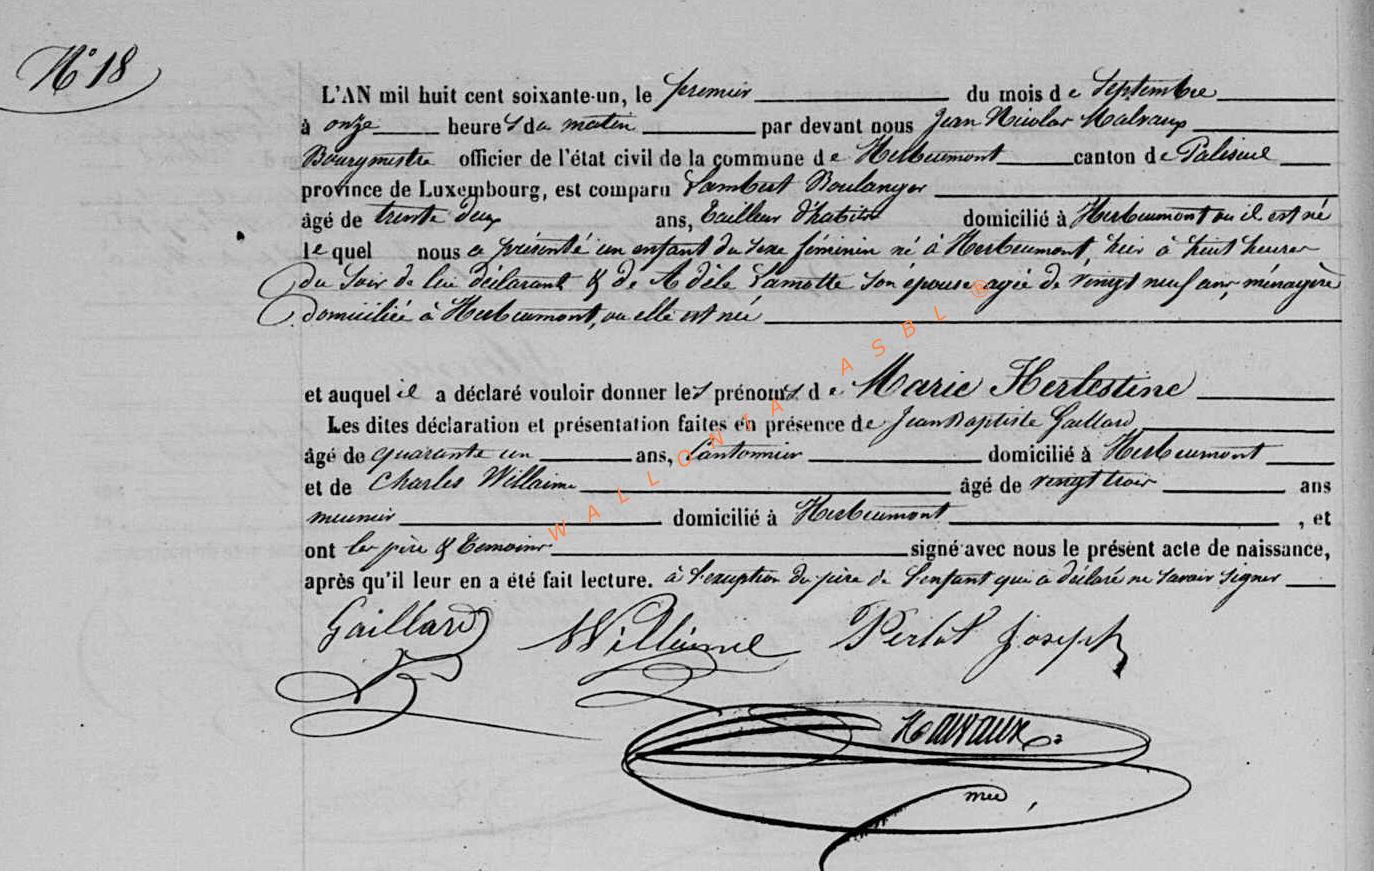 N° 18
L'AN mil huit cent soixante-un, le premier du mois de Septembre
à onze heures du matin par devant nous Jean Nicolas Malvaux
Bourgmestre officier de l'état civil de la commune de Herbeumont canton de Paliseul
province de Luxembourg, est comparu Lambert Boulanger
âgé de trente deux ans, tailleur d'habits domicilié à Herbeumont ou il est né
lequel nous a présenté un enfant du sexe féminin né à Herbeumont, hier à huit heures
du soir de lui déclarant & de Adèle Lamotte son épouse agée de vingt neuf ans, ménagère
domiciliée à Herbeumont, ou elle est née
et auquel il a déclaré vouloir donner les prénoms de Marie Herlestine
Les dites déclaration et présentation faites en présence de Jean Baptiste Gaillard
âgé de quarante un ans, Cantonnier domicilié à Herbeumont
et de Charles Willaime âgé de vingt trois ans
meunier domicilié à Herbeumont , et
ont les père & temoins signé avec nous le présent acte de naissance,
après qu'il leur en a été fait lecture. à l'exception du père de l'enfant qui a déclaré ne savoir signer
Gaillard Willaime Perlot Joseph
Malvaux
WALLONIA ASBL ®